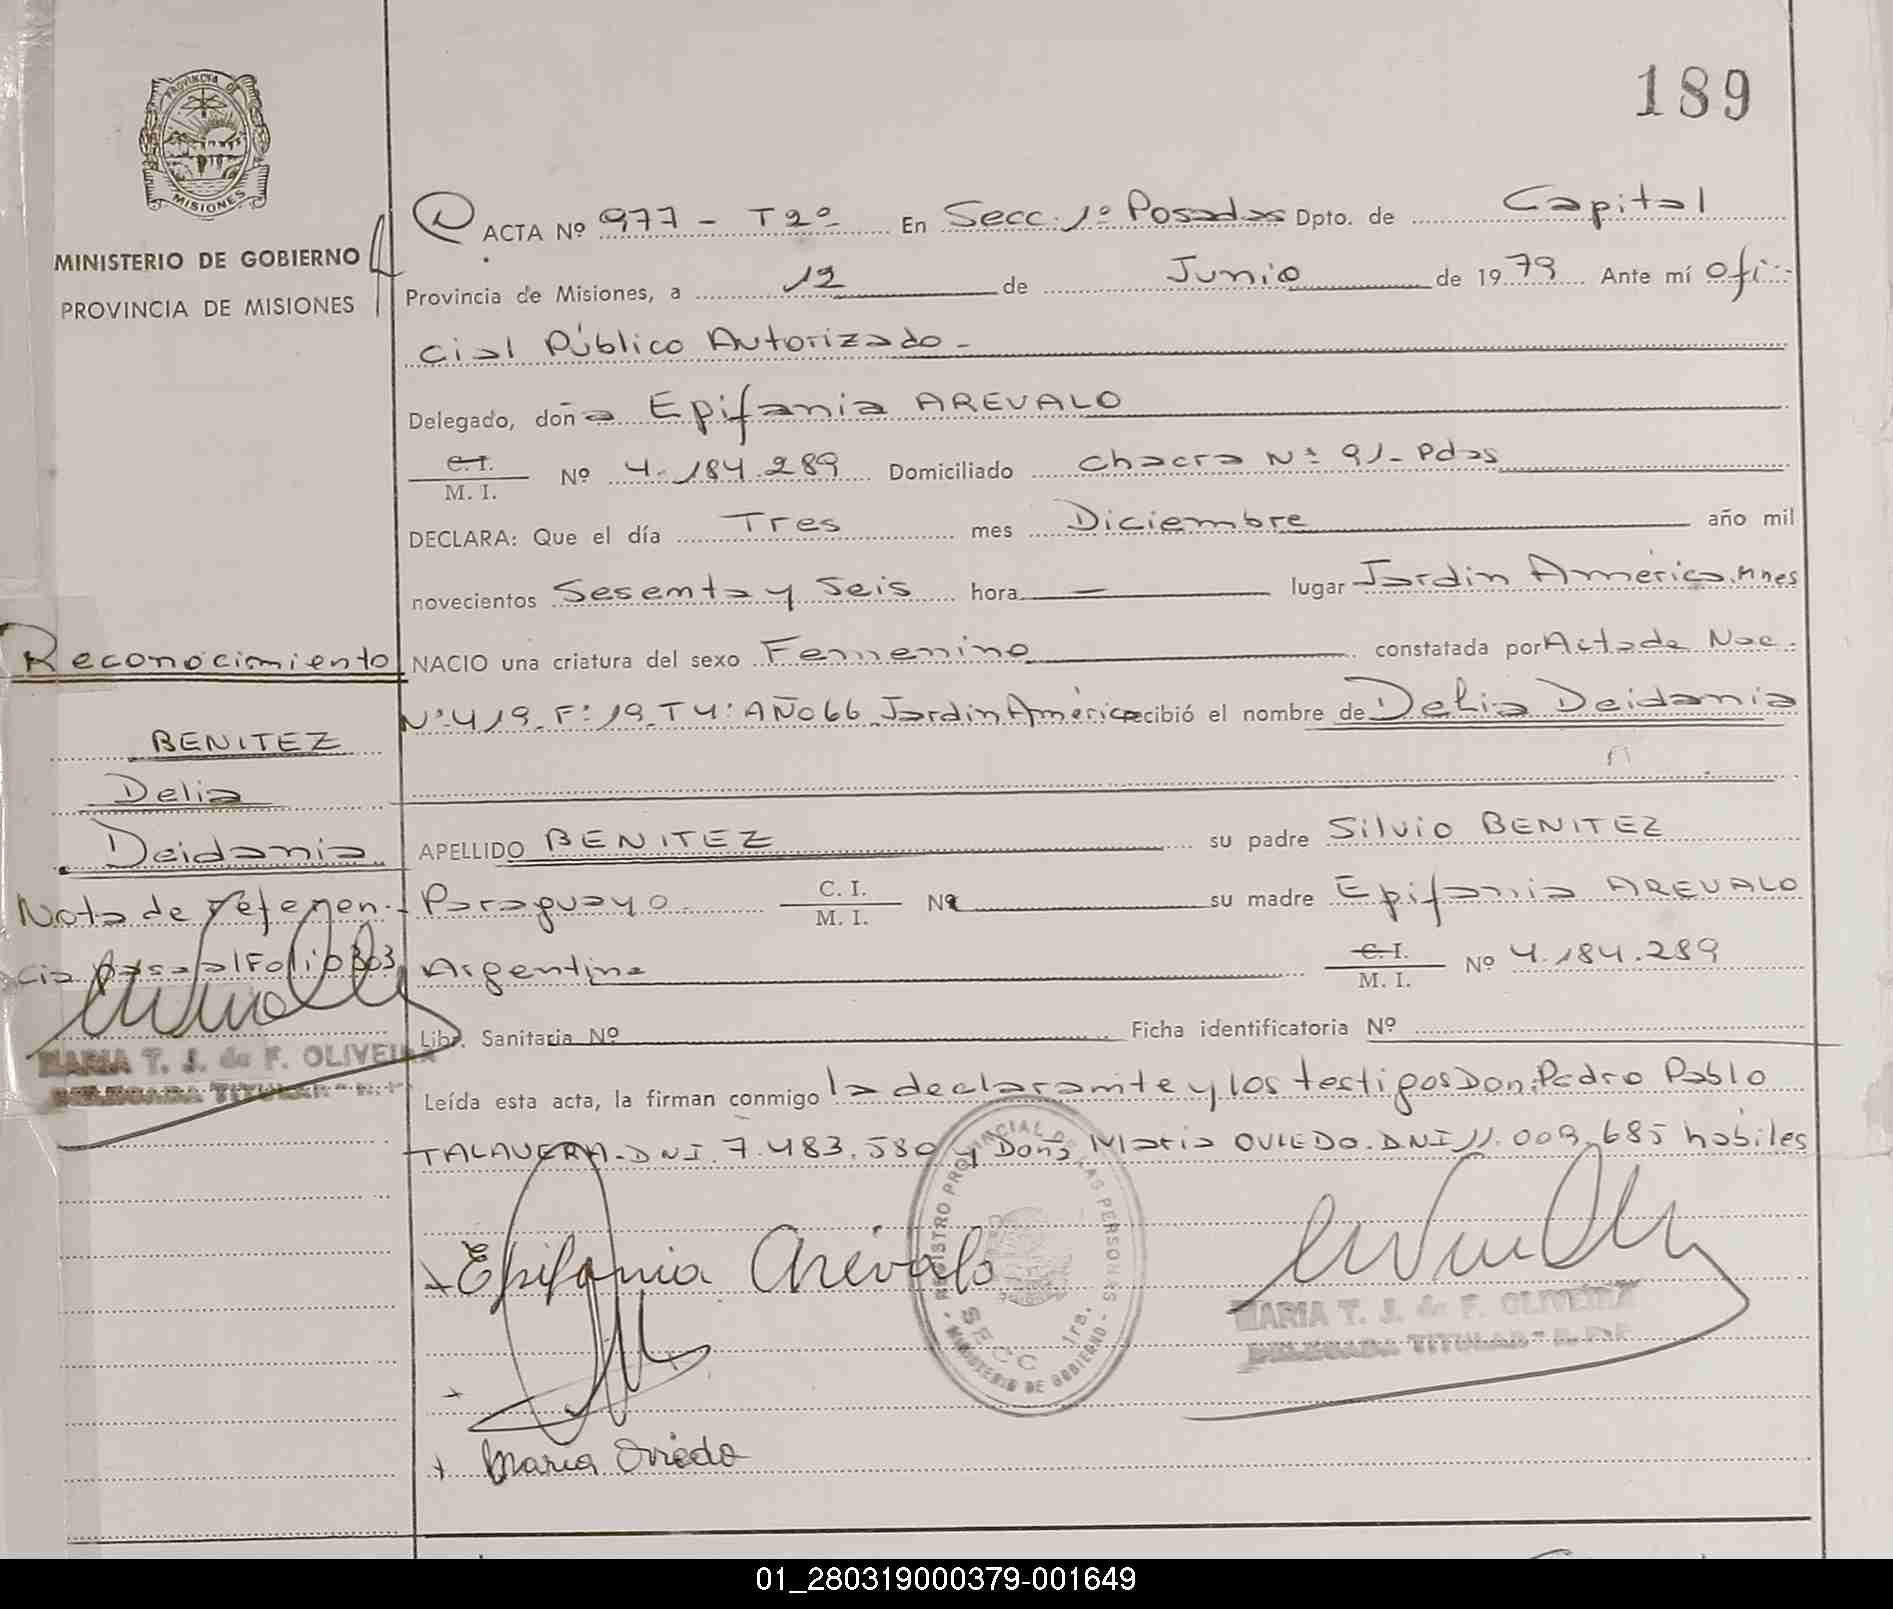 189
PROVINCIA DE
MISIONES
MINISTERIO DE GOBIERNO
PROVINCIA DE MISIONES
ACTA Nº 977 - T2º En Secc. 1º Posadas Dpto. de Capital
Provincia de Misiones, a 12 de Junio de 1979 Ante mí ofi-
cial Público Autorizado -
Delegado, doña Epifania AREVALO
C. I.
M. I. Nº 4.184.289 Domiciliado Chacra Nº 91- Pdas
DECLARA: Que el día Tres mes Diciembre año mil
novecientos Sesenta y Seis hora — lugar Jardin América. Mnes
Reconocimiento
NACIO una criatura del sexo Femenino constatada por Acta de Nac.
Nº 419. Fº 19. T4º AÑO 66 Jardin América recibió el nombre de Delia Deidania
BENITEZ
Delia
Deidania
APELLIDO BENITEZ su padre Silvio BENITEZ
Nota de referen-
cia pasa al Folio 303
Paraguayo C. I. M. I. Nº su madre Epifania AREVALO
Argentina C. I. M. I. Nº 4.184.289
Libr. Sanitaria Nº Ficha identificatoria Nº
MARIA T. J. de F. OLIVEIRA
DELEGADA TITULAR
Leída esta acta, la firman conmigo la declarante y los testigos Don: Pedro Pablo
TALAVERA. DNI. 7.483.580 y Doña Maria OVIEDO. DNI 11.009.685 hábiles
Epifania Arévalo
REGISTRO PROVINCIAL DE LAS PERSONAS
SECC 1ra.
MINISTERIO DE GOBIERNO
MARIA T. J. de F. OLIVEIRA
DELEGADA TITULAR
Maria Oviedo
01_280319000379-001649